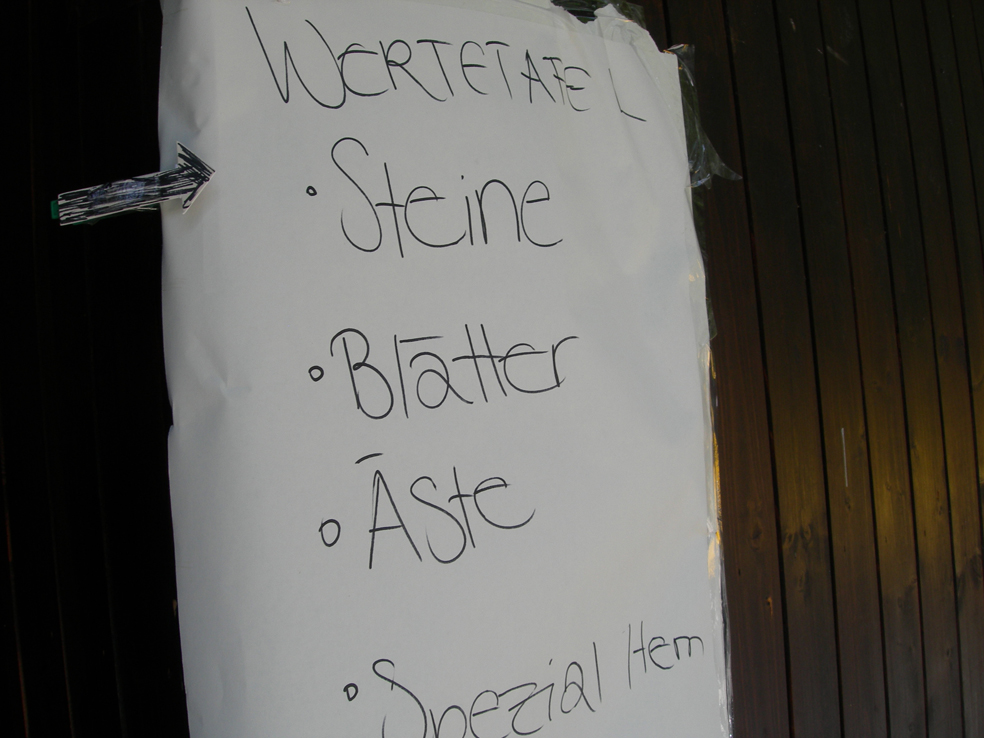 WERTETAFEL
• Steine
• Blätter
• Äste
• Spezial Item